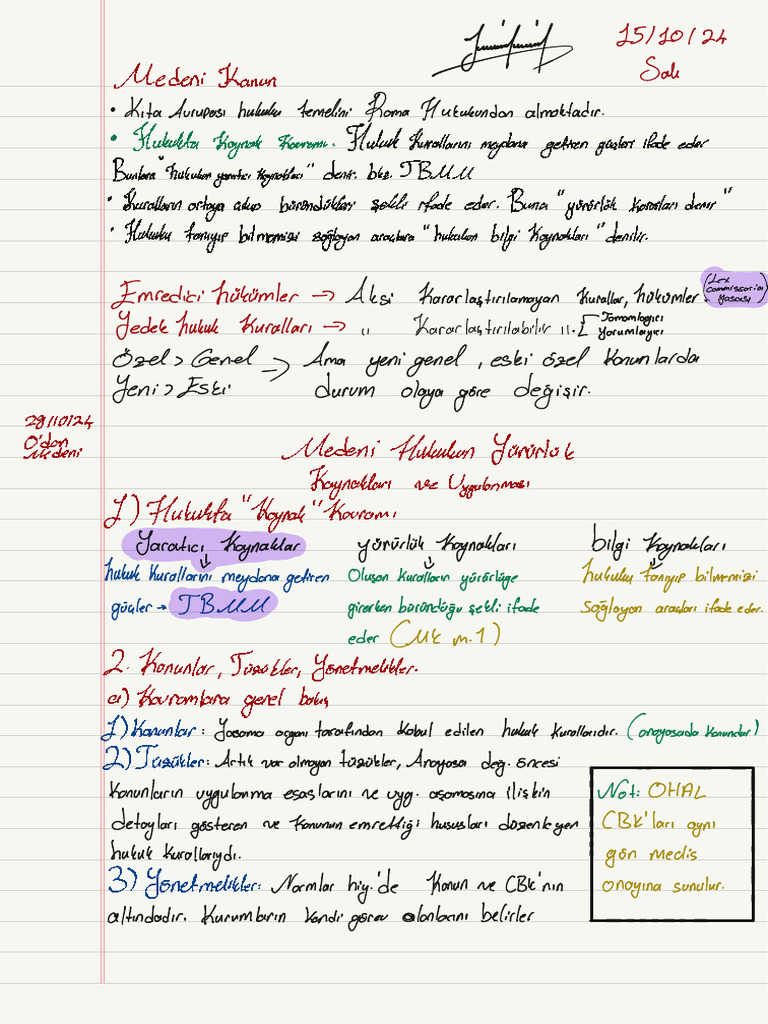 15/10/24
Salı
Medeni Kanun
• Kıta Avrupası hukuku temelini Roma Hukukundan almaktadır.
• Hukukta Kaynak Kavramı. Hukuk kurallarını meydana getiren güçleri ifade eder
Bunlara "hukukun yaratıcı kaynakları" denir. bkz. TBMM
• Kuralların ortaya çıkıp büründükleri şekli ifade eder. Buna "yürürlük kararları denir"
• Hukuku tanıyıp bilmemizi sağlayan araçlara "hukukun bilgi kaynakları" denilir.
Emredici hükümler → Aksi Kararlaştırılamayan Kurallar, hükümler. (Lex commissoria yasası)
Yedek hukuk Kuralları → " Kararlaştırılabilir ". [Tamamlayıcı yorumlayıcı
Özel > Genel → Ama yeni genel, eski özel kanunlarda
Yeni > Eski durum olaya göre değişir.
29/10/24
O'dan
Medeni
Medeni Hukukun Yürürlük
Kaynakları ve Uygulanması
1) Hukukta "Kaynak" Kavramı
Yaratıcı Kaynaklar yürürlük Kaynakları bilgi Kaynakları
hukuk kurallarını meydana getiren Oluşan kuralların yürürlüğe hukuku tanıyıp bilmemizi
güçler → TBMM girerken büründüğü şekli ifade sağlayan araçları ifade eder.
eder (Mk m.1)
2. Kanunlar, Tüzükler, Yönetmelikler.
a) Kavramlara genel bakış
1) Kanunlar: Yasama organı tarafından kabul edilen hukuk kurallarıdır. (anayasada kanundur)
2) Tüzükler: Artık var olmayan tüzükler, Anayasa değ. öncesi
kanunların uygulanma esaslarını ve uyg. aşamasına ilişkin
detayları gösteren ve kanunun emrettiği hususları düzenleyen
hukuk kurallarıydı.
3) Yönetmelikler: Normlar hiy.'de Kanun ve CBk'nın
altındadır. Kurumların kendi görev alanlarını belirler
Not: OHAL
CBk'ları aynı
gün meclis
onayına sunulur.